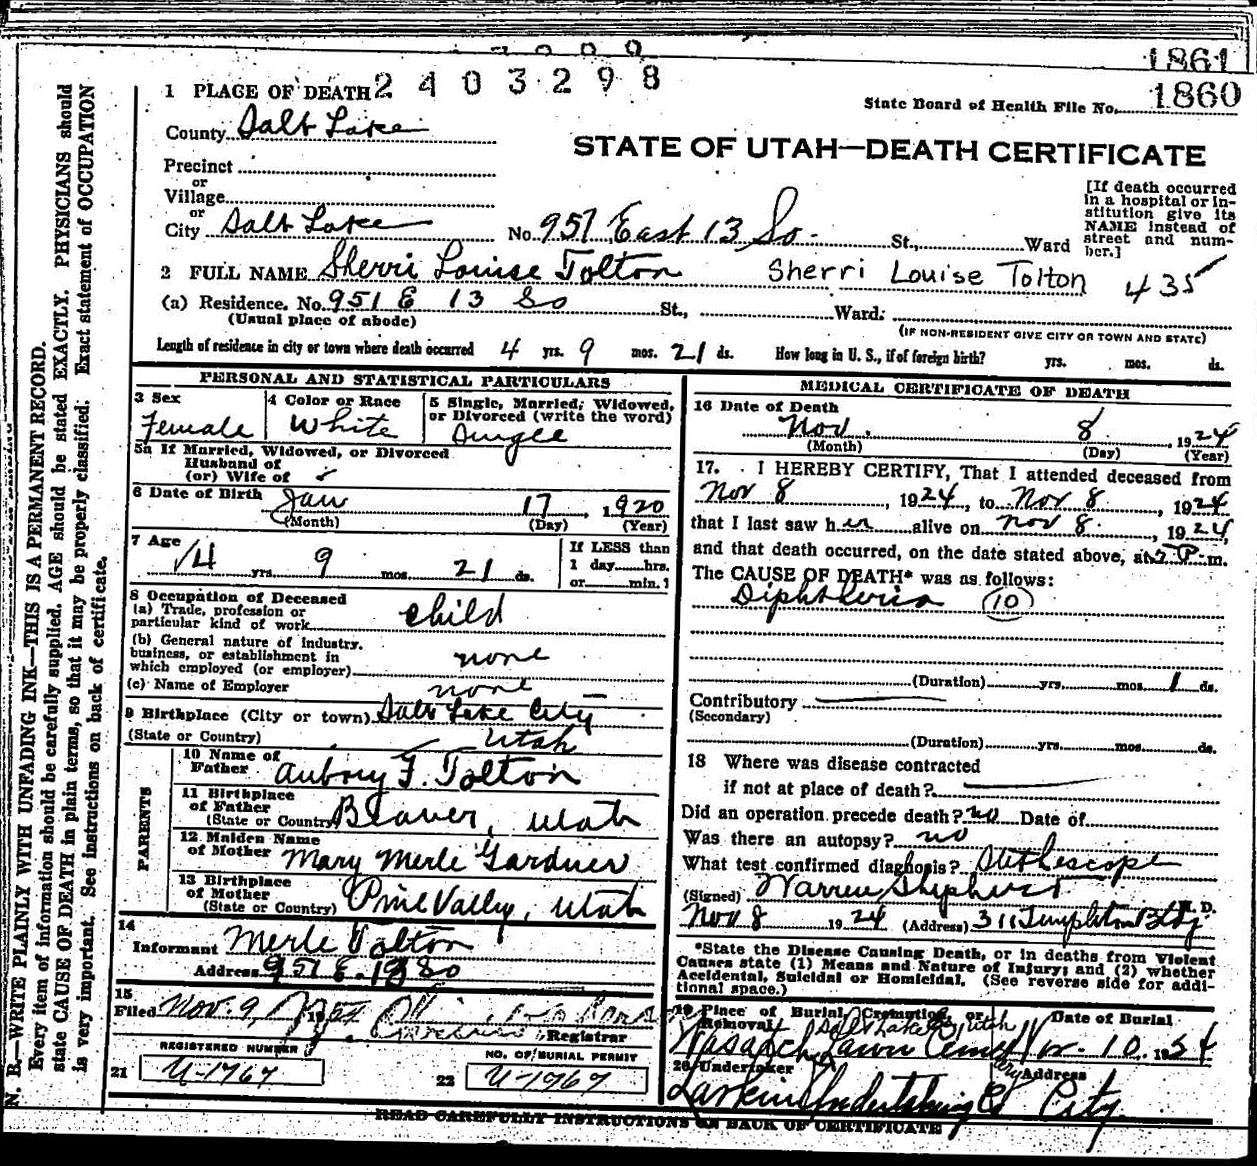 1861
2403298
1 PLACE OF DEATH
State Board of Health File No. 1860
County Salt Lake
STATE OF UTAH—DEATH CERTIFICATE
Precinct
or
Village
or
City Salt Lake No. 951 East 13 So. St., Ward
[If death occurred in a hospital or institution give its NAME instead of street and number.]
2 FULL NAME Sherri Louise Tolton Sherri Louise Tolton 435
(a) Residence. No. 951 E 13 So St., Ward.
(Usual place of abode) (IF NON-RESIDENT GIVE CITY OR TOWN AND STATE)
Length of residence in city or town where death occurred 4 yrs. 9 mos. 21 ds. How long in U. S., if of foreign birth? yrs. mos. ds.
PERSONAL AND STATISTICAL PARTICULARS
3 Sex Female
4 Color or Race White
5 Single, Married, Widowed, or Divorced (write the word) Single
5a If Married, Widowed, or Divorced
Husband of
(or) Wife of
6 Date of Birth Jan 17 1920
(Month) (Day) (Year)
7 Age 4 yrs. 9 mos. 21 ds.
If LESS than 1 day hrs. or min.?
8 Occupation of Deceased
(a) Trade, profession or particular kind of work child
(b) General nature of industry, business, or establishment in which employed (or employer) none
(c) Name of Employer none
9 Birthplace (City or town) Salt Lake City
(State or Country) Utah
PARENTS
10 Name of Father Aubrey F. Tolton
11 Birthplace of Father (State or Country) Beaver, Utah
12 Maiden Name of Mother Mary Merle Gardner
13 Birthplace of Mother (State or Country) Pine Valley, Utah
14 Informant Merle Tolton
Address 951 E. 13 So
15 Filed Nov. 9, Registrar
REGISTERED NUMBER
21 U-1767
NO. OF BURIAL PERMIT
22 U-1767
MEDICAL CERTIFICATE OF DEATH
16 Date of Death
Nov. 8 1924
(Month) (Day) (Year)
17. I HEREBY CERTIFY, That I attended deceased from
Nov 8, 1924, to Nov 8, 1924
that I last saw her alive on Nov 8, 1924,
and that death occurred, on the date stated above, at 2 P. m.
The CAUSE OF DEATH* was as follows:
Diphtheria (10)
(Duration) yrs. mos. 1 ds.
Contributory
(Secondary)
(Duration) yrs. mos. ds.
18 Where was disease contracted
if not at place of death?
Did an operation precede death? no Date of
Was there an autopsy? no
What test confirmed diagnosis? Stethescope
(Signed) Warren Shepherd M. D.
Nov 8 1924 (Address) 311 Templeton Bldg
*State the Disease Causing Death, or in deaths from Violent
Causes state (1) Means and Nature of Injury; and (2) whether
Accidental, Suicidal or Homicidal. (See reverse side for additional space.)
19 Place of Burial, Cremation, or Removal Salt Lake City Utah
Wasatch Lawn Cemetery
Date of Burial
Nov. 10. 1924
20 Undertaker Address
Larkin Undertaking Co City
READ CAREFULLY INSTRUCTIONS ON BACK OF CERTIFICATE
N. B.—WRITE PLAINLY WITH UNFADING INK—THIS IS A PERMANENT RECORD.
Every item of information should be carefully supplied. AGE should be stated EXACTLY. PHYSICIANS should
state CAUSE OF DEATH in plain terms, so that it may be properly classified. Exact statement of OCCUPATION
is very important. See instructions on back of certificate.